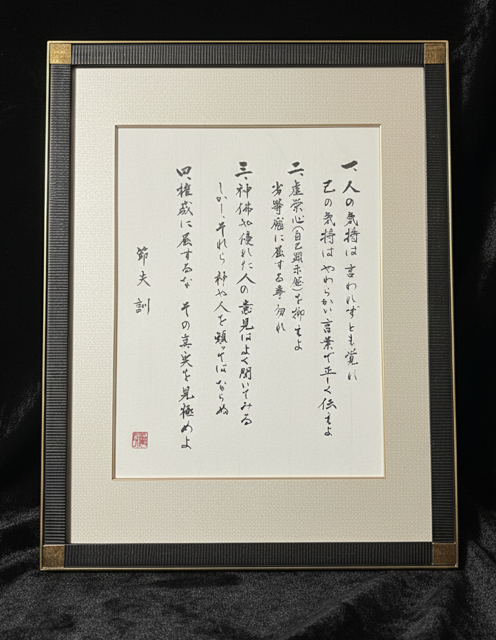 一、人の気持は言われずとも覚れ
己の気持はやわらかい言葉で正しく伝えよ
二、虚栄心(自己顕示慾)を抑えよ
劣等感に屈する事勿れ
三、神佛や優れた人の意見はよく聞いてみる
しかし、それら神や人を頼ってはならぬ
四、権威に屈するな その真実を見極めよ
節夫 訓